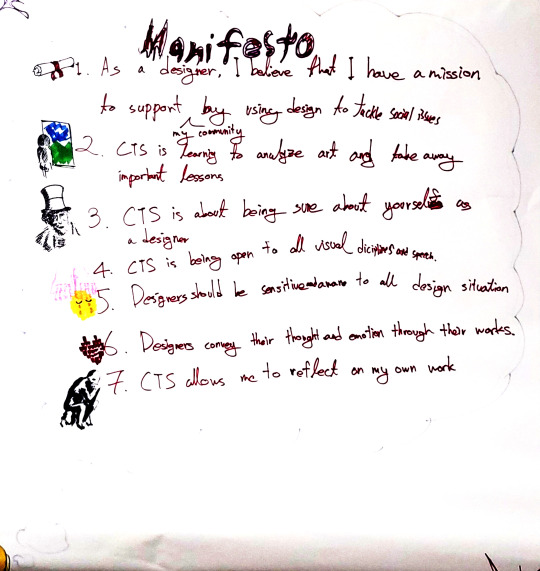 Manifesto
1. As a designer, I believe that I have a mission
to support by using design to tackle social issues
my community
2. CTS is learning to analyze art and take away
important lessons
3. CTS is about being sure about yourself as
a designer
4. CTS is being open to all visual diciplines and speech.
5. Designers should be sensitive and aware to all design situation
6. Designers convey their thought and emotion through their works.
7. CTS allows me to reflect on my own work